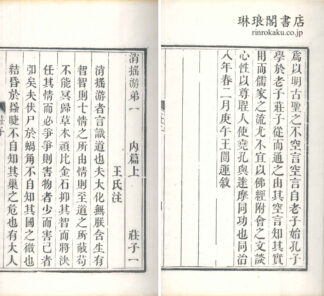 琳琅閣書店
rinrokaku.co.jp
為以明古聖之不空言空言自老子始孔子
學於老子莊子從而通之由其空言知其實
用而儒家之流尤不宜以佛經附會之文談
心性以尊聖人使堯孔與達摩同功也同治
八年春二月庚午王闓運敘
消搖游弟一 內篇上 莊子一
王氏注
消搖游者言識道也夫大化無朕含生有
智智則七情之所由情則至道之所蔽苟
不能冥歸草木頑比金石抑其智而將決
任其情而必爭爭則害物者少而害己者
矣夫伏尸於蝸角不自知其國之微也
結昏於睫不自知其巢之危也有大人